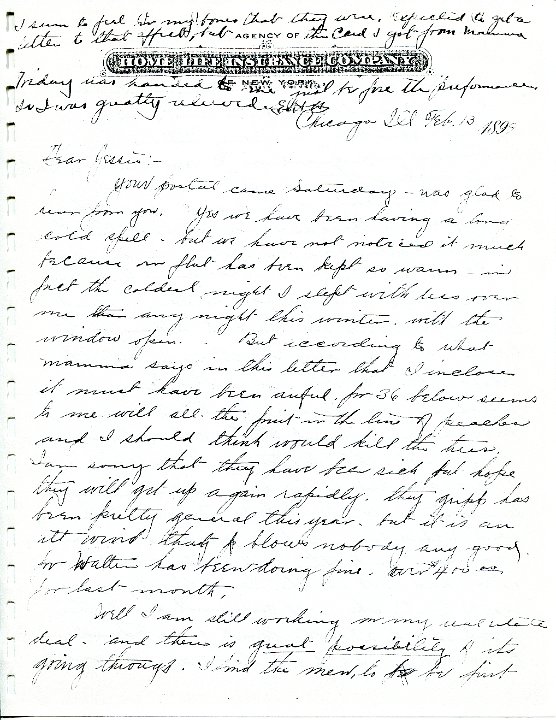 I seem to feel in my bones that they were. Expected to get a
letter to that effect, but the card I got from Mamma
AGENCY OF
HOME LIFE INSURANCE COMPANY
NEW YORK.
Today was handed to me
so I was greatly relieved
Chicago Ill Feb. 13 189
Dear Jessie:-
Your postal came Saturday - was glad to
hear from you. Yes we have been having a long
cold spell - but we have not noticed it much
because our flat has been kept so warm - in
fact the coldest night I slept with less over
me than any night this winter. with the
window open. But according to what
mamma says in this letter that I inclose
it must have been awful for 36 below seems
to me will all the fruit in the line of peaches
and I should think would kill the trees,
I am sorry that they have been sick but hope
they will get up again rapidly. they gripp has
been pretty general this year. but it is an
ill wind that blows nobody any good
for Walter has been doing fine. over $400
for last month.
Well I am still working on my real estate
deal - and there is great possibility of its
going through. I find the men, to be first